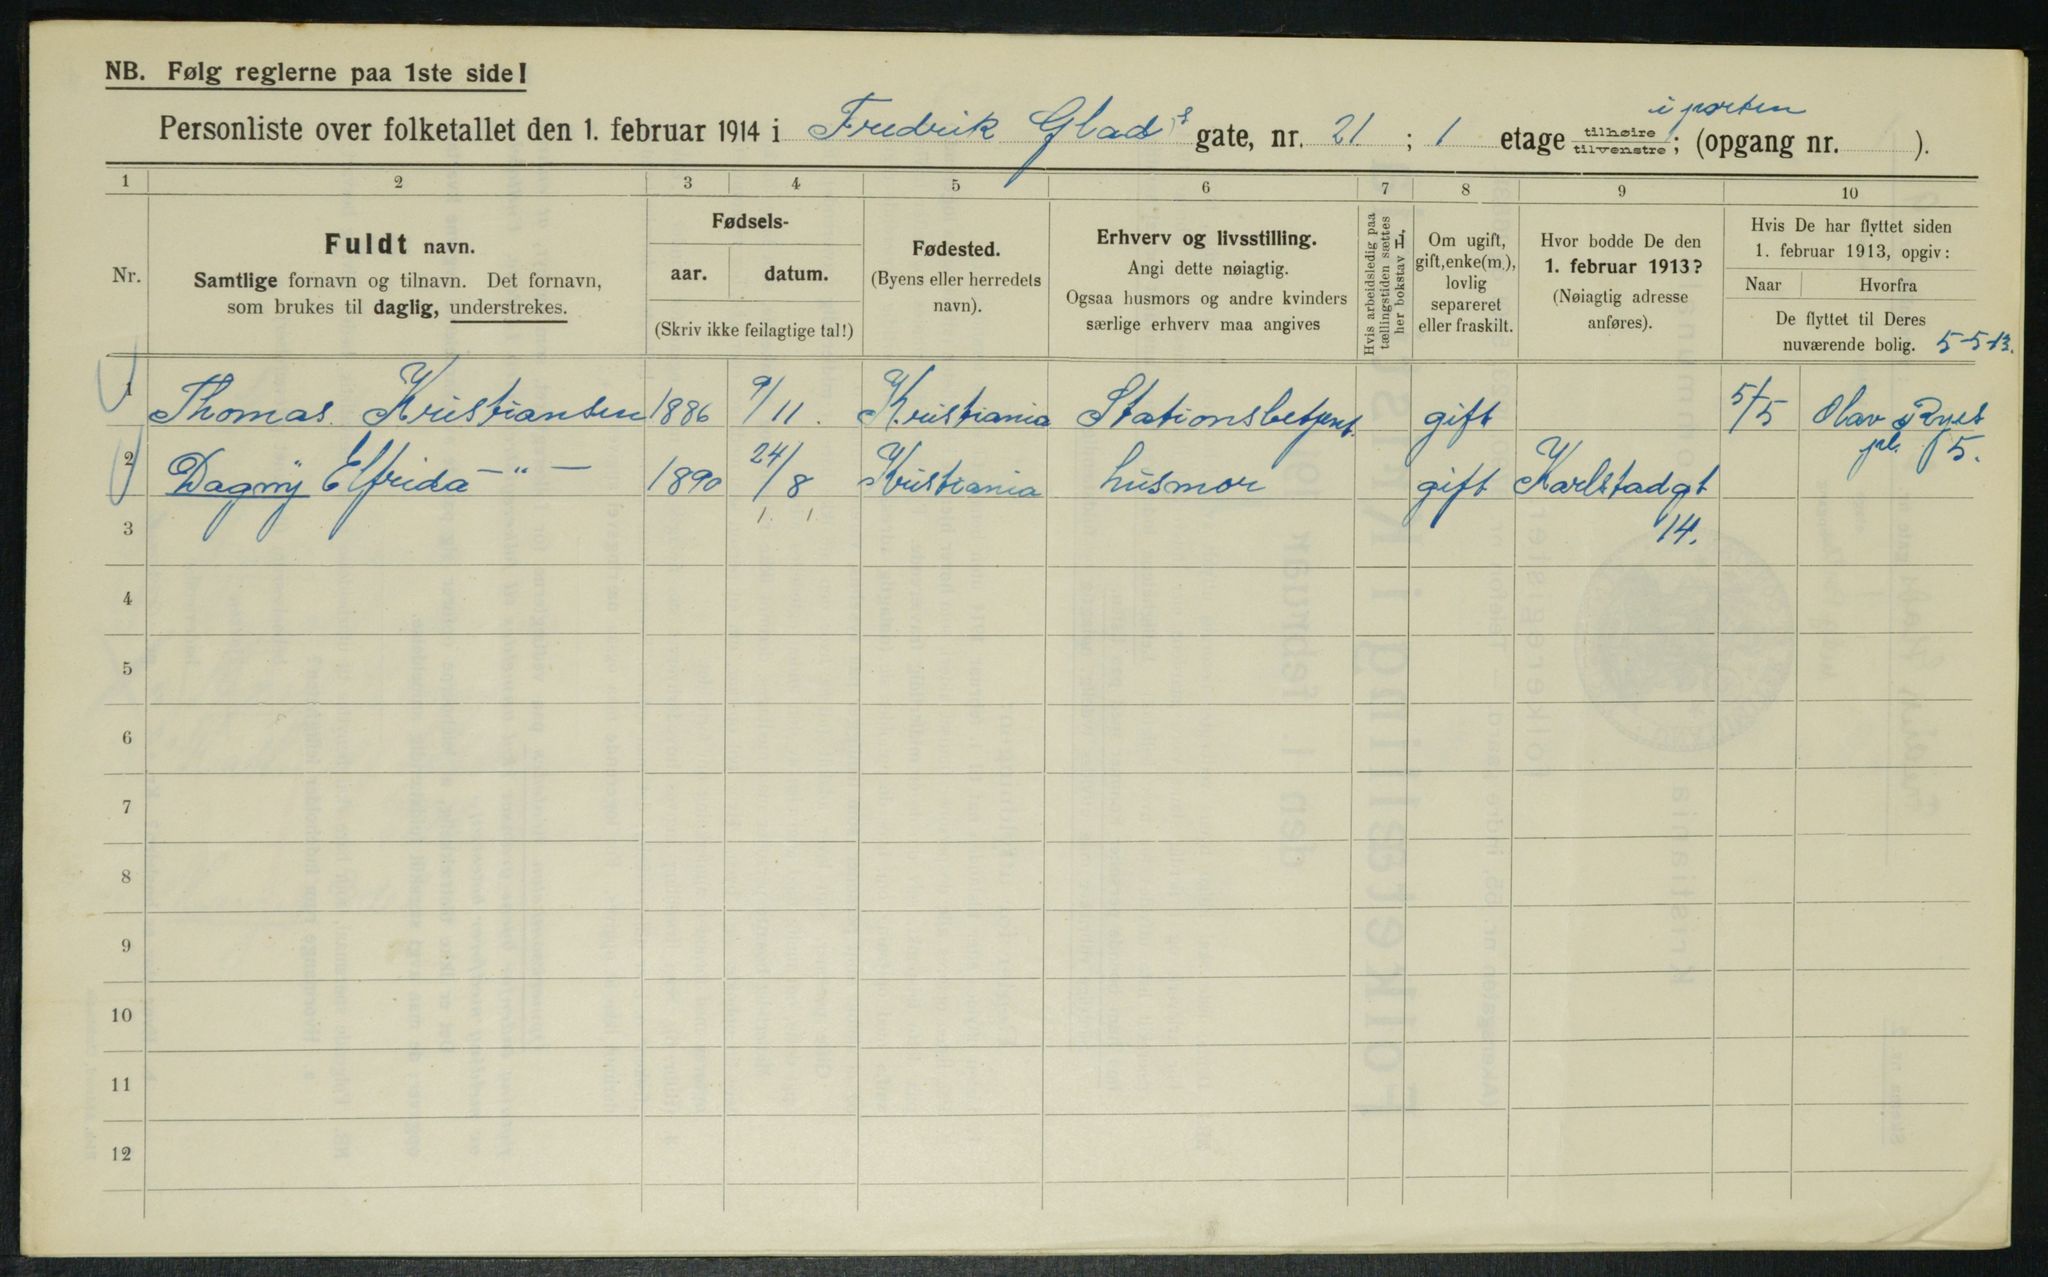 NB. Følg reglerne paa 1ste side!
Personliste over folketallet den 1. februar 1914 i Fredrik Glads gate, nr. 21 ; 1 etage tilhøire tilvenstre i porten; (opgang nr. ).
1 2 3 4 5 6 7 8 9 10
Nr.
Fuldt navn.
Samtlige fornavn og tilnavn. Det fornavn,
som brukes til daglig, understrekes.
Fødsels-
aar. datum.
(Skriv ikke feilagtige tal!)
Fødested.
(Byens eller herredets
navn).
Erhverv og livsstilling.
Angi dette nøiagtig.
Ogsaa husmors og andre kvinders
særlige erhverv maa angives
Hvis arbeidsledig paa
tællingstiden sættes
her bokstav H.
Om ugift,
gift, enke(m.),
lovlig
separeret
eller fraskilt.
Hvor bodde De den
1. februar 1913?
(Nøiagtig adresse
anføres).
Hvis De har flyttet siden
1. februar 1913, opgiv:
Naar Hvorfra
De flyttet til Deres
nuværende bolig. 5-5-13.
1 Thomas Kristiansen 1886 9/11. Kristiania Stationsbetjent. gift 5/5 Olav Ryes
pl. 5.
2 Dagny Elfrida —"— 1890 24/8 Kristiania husmor gift Karlstadgt
14.
3
4
5
6
7
8
9
10
11
12